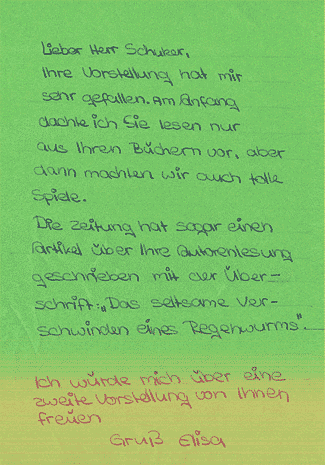 Lieber Herr Schuker,
Ihre Vorstellung hat mir
sehr gefallen. Am Anfang
dachte ich Sie lesen nur
aus Ihren Büchern vor, aber
dann machten wir auch tolle
Spiele.
Die Zeitung hat sogar einen
Artikel über Ihre Autorenlesung
geschrieben mit der Über-
schrift: „Das seltsame Ver-
schwinden eines Regenwurms“.
Ich würde mich über eine
zweite Vorstellung von Ihnen
freuen
Gruß Elisa